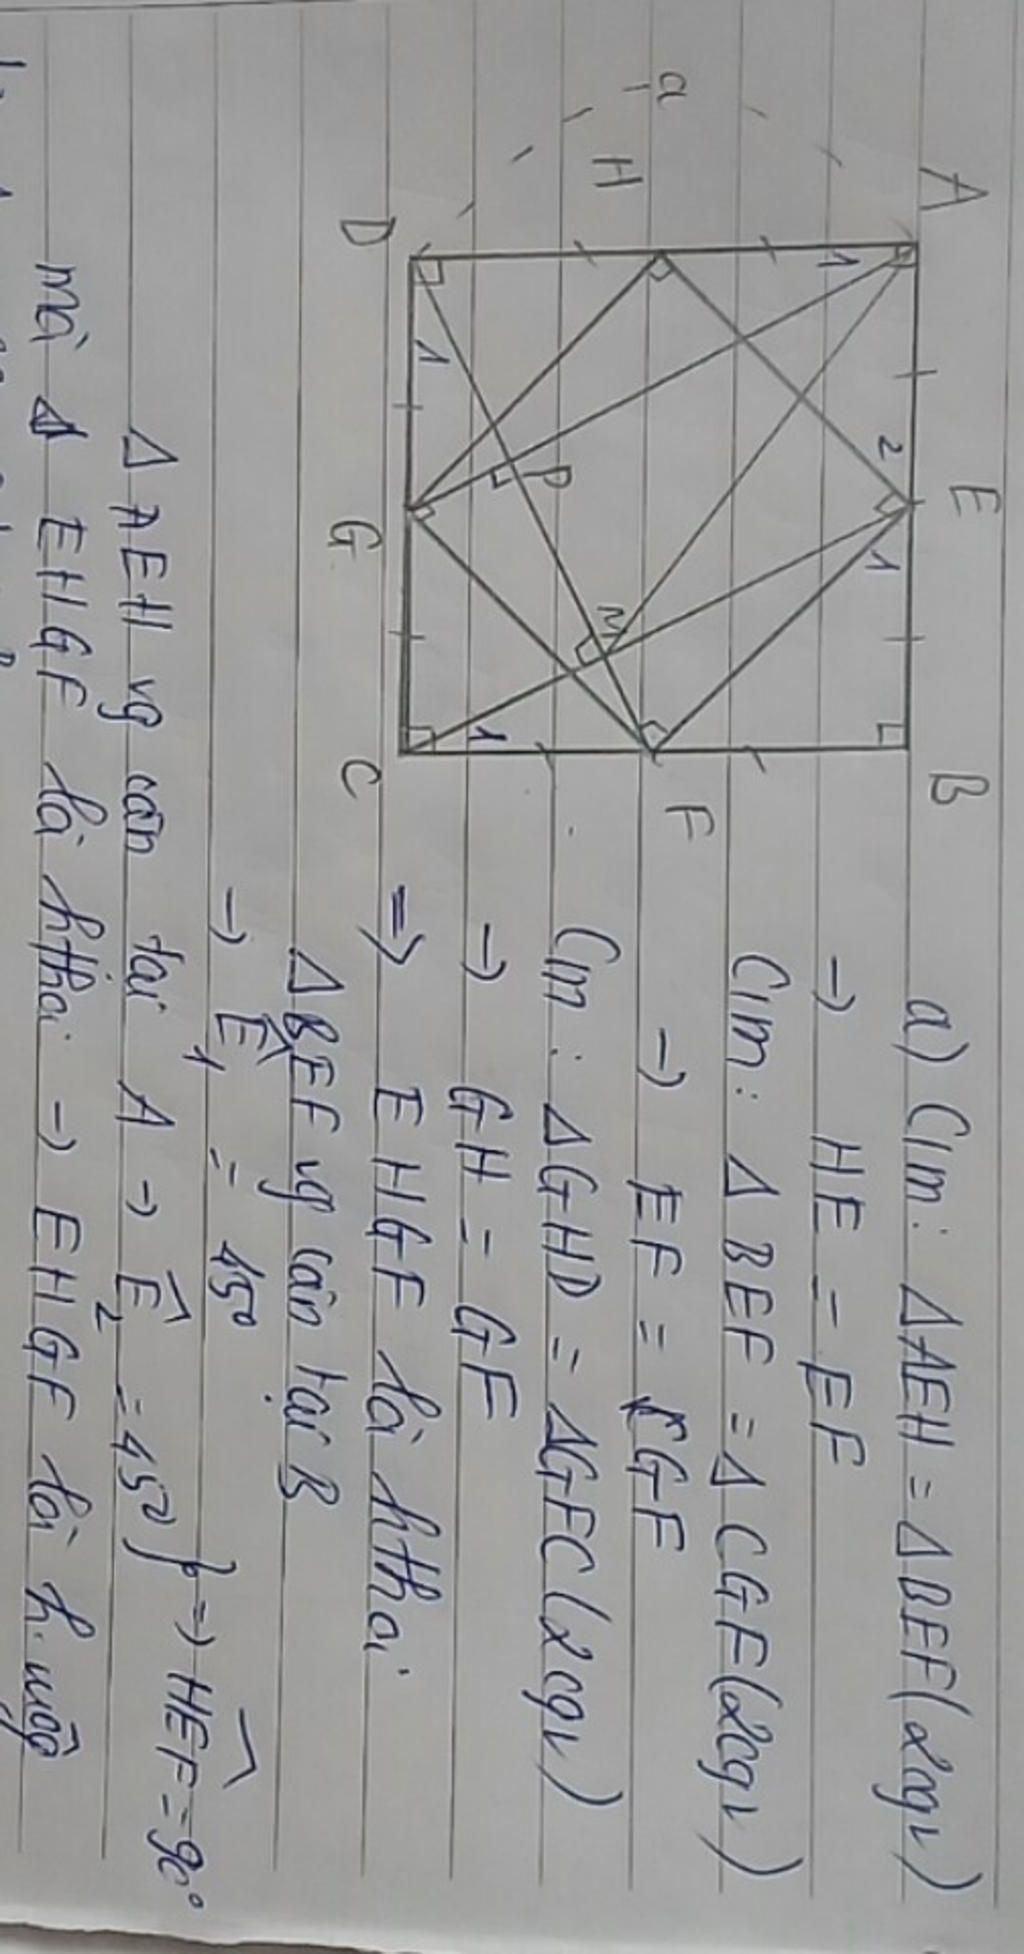 A
E
B
1
2
1
a
H
P
M
F
1
1
D
G
C
a) C/m: ΔAEH = ΔBEF (2cgv)
→ HE = EF
C/m: Δ BEF = Δ CGF (2cgv)
→ EF = GF
Cm: ΔGHD = ΔGFC (2cgv)
→ GH = GF
⇒ EHGF là hthoi
ΔBEF vg cân tại B
→ Ê₁ = 45°
Δ AEH vg cân tại A → Ê₂ = 45° } ⇒ HEF = 90°
mà EHGF là hthoi → EHGF là h.vuông